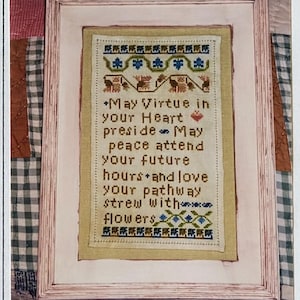 May Virtue in
your Heart
preside May
peace attend
your future
hours and love
your pathway
strew with
flowers